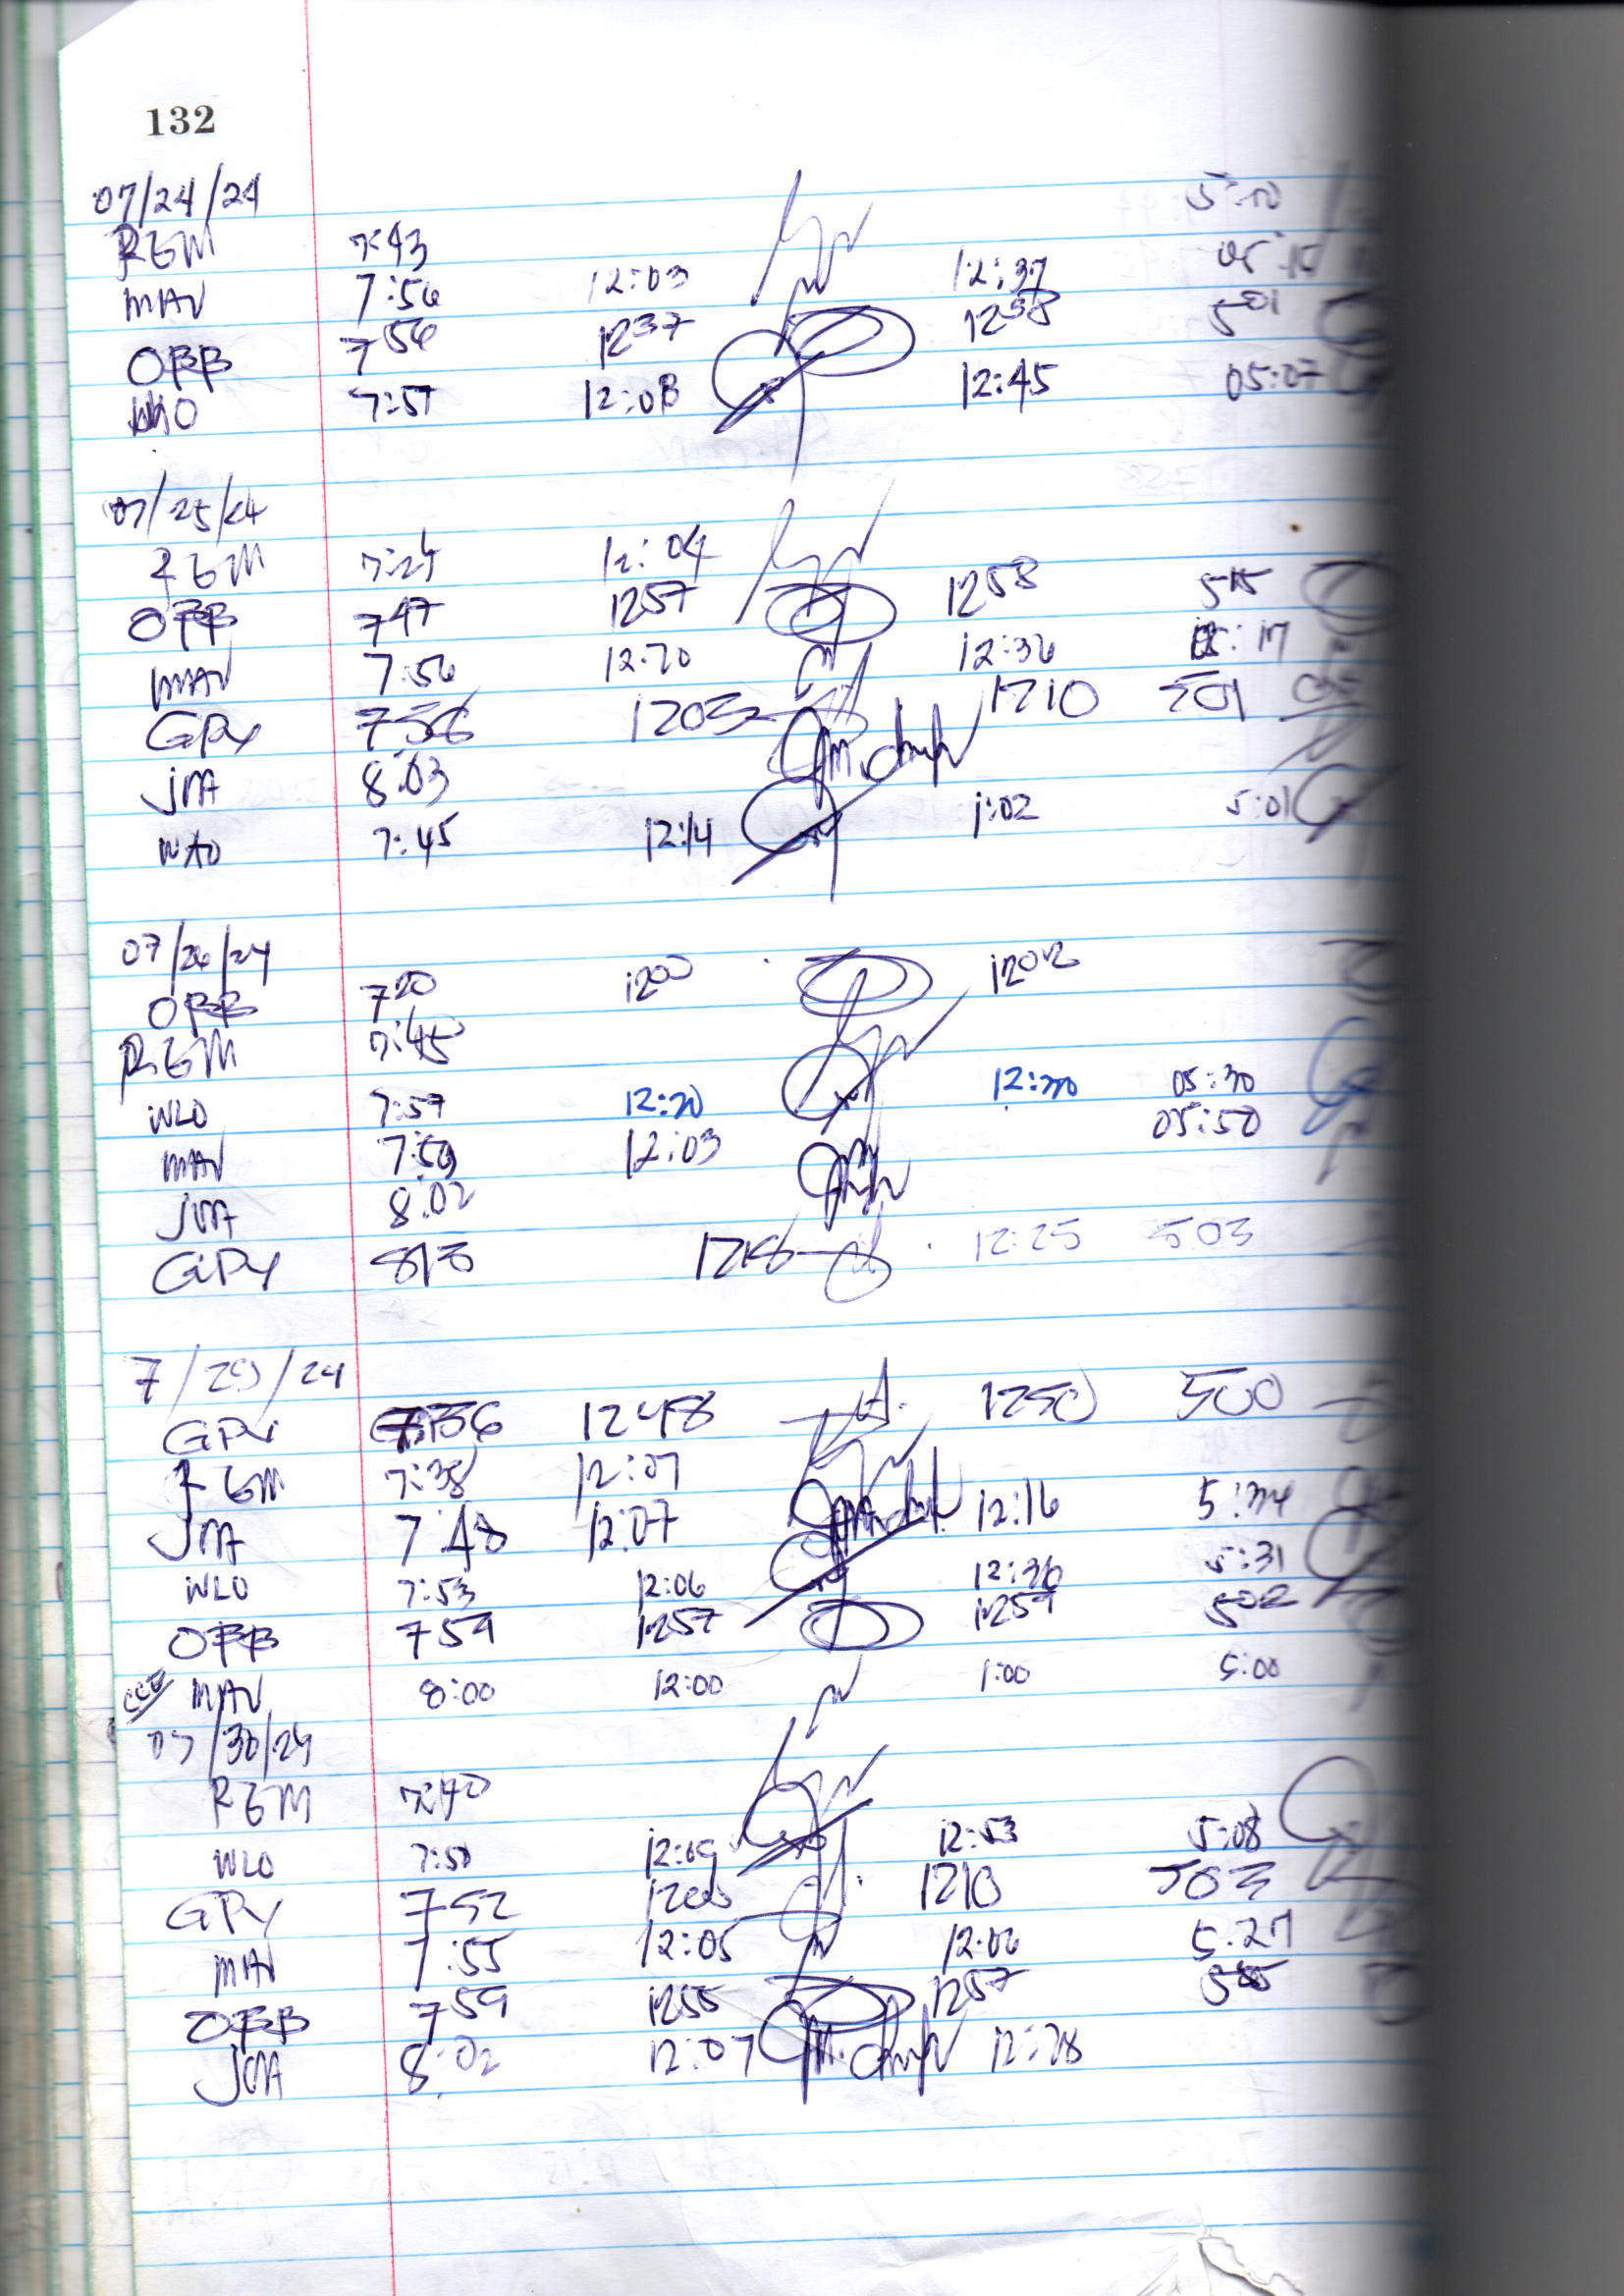 132
07/24/24
RGM 7:43 5:10
MAV 7:56 12:03 12:37
OBB 7 56 12 37 12 38 5 01
WLO 7:57 12:08 12:45 05:07
07/25/24
RGM 7:24 12:04
OBB 7 47 12 57 12 58 5 15
MAV 7:56 12:20 12:36 05:17
GPY 756 1203 1210 501
JMA 8:03
WLO 7:45 12:14 1:02 5:01
07/26/24
OBB 7 20 12 00 12 02
RGM 7:45
WLO 7:59 12:20 12:30 05:30
MAV 7:59 12:03 05:50
JMA 8:02
GPY 813 1218 12:25 5:03
7/29/24
GPY 736 1248 1250 500
RGM 7:38 12:07
JMA 7:48 12:07 12:16 5:34
WLO 7:53 12:06 12:36 5:31
OBB 7 59 12 57 12 59 5 02
MAV 8:00 12:00 1:00 5:00
07/30/24
RGM 7:40
WLO 7:50 12:09 12:53 5:08
GPY 752 1210 503
MAV 7:55 12:05 12:06 5:27
OBB 7 59 12 55 12 57
JMA 8:02 12:07 12:28